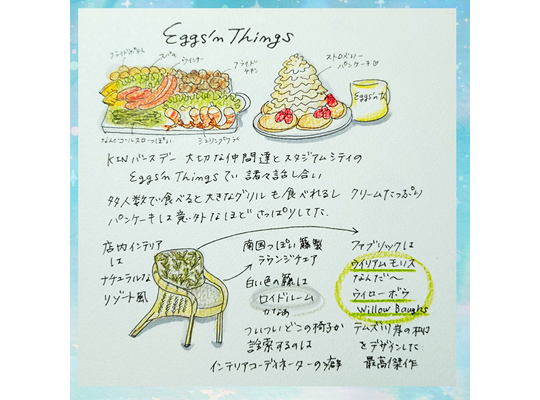 Eggs'n Things
フライドポテト
スパム
ウインナー
フライドチキン
ストロベリー
パンケーキ
なんだコールスローっぽい
シュリンプフライ
Eggs'n
KINバースデー 大切な仲間達とスタジアムシティの
Eggs'n Thingsでい 諸々話し合い
多人数で食べると大きなグリルも食べれるし クリームたっぷり
パンケーキは意外なほどさっぱりしてた
店内インテリア
は
ナチュラルな
リゾート風
南国っぽい籐製
ラウンジチェア
白い色の籐は
ロイドルーム
かなぁ
ついついどこの椅子か
診察するのは
インテリアコーディネーターの癖
ファブリックは
ウイリアムモリス
なんだ〜
ウィローボウ
Willow Boughs
テムズ川岸の柳
をデザインした
最高傑作